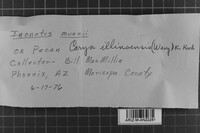 Inonotus munzii
ex Pecan Carya illinoensis (Wang) K. Koch
Collector - Bill MacMillin
Phoenix, AZ Maricopa County
6-17-76